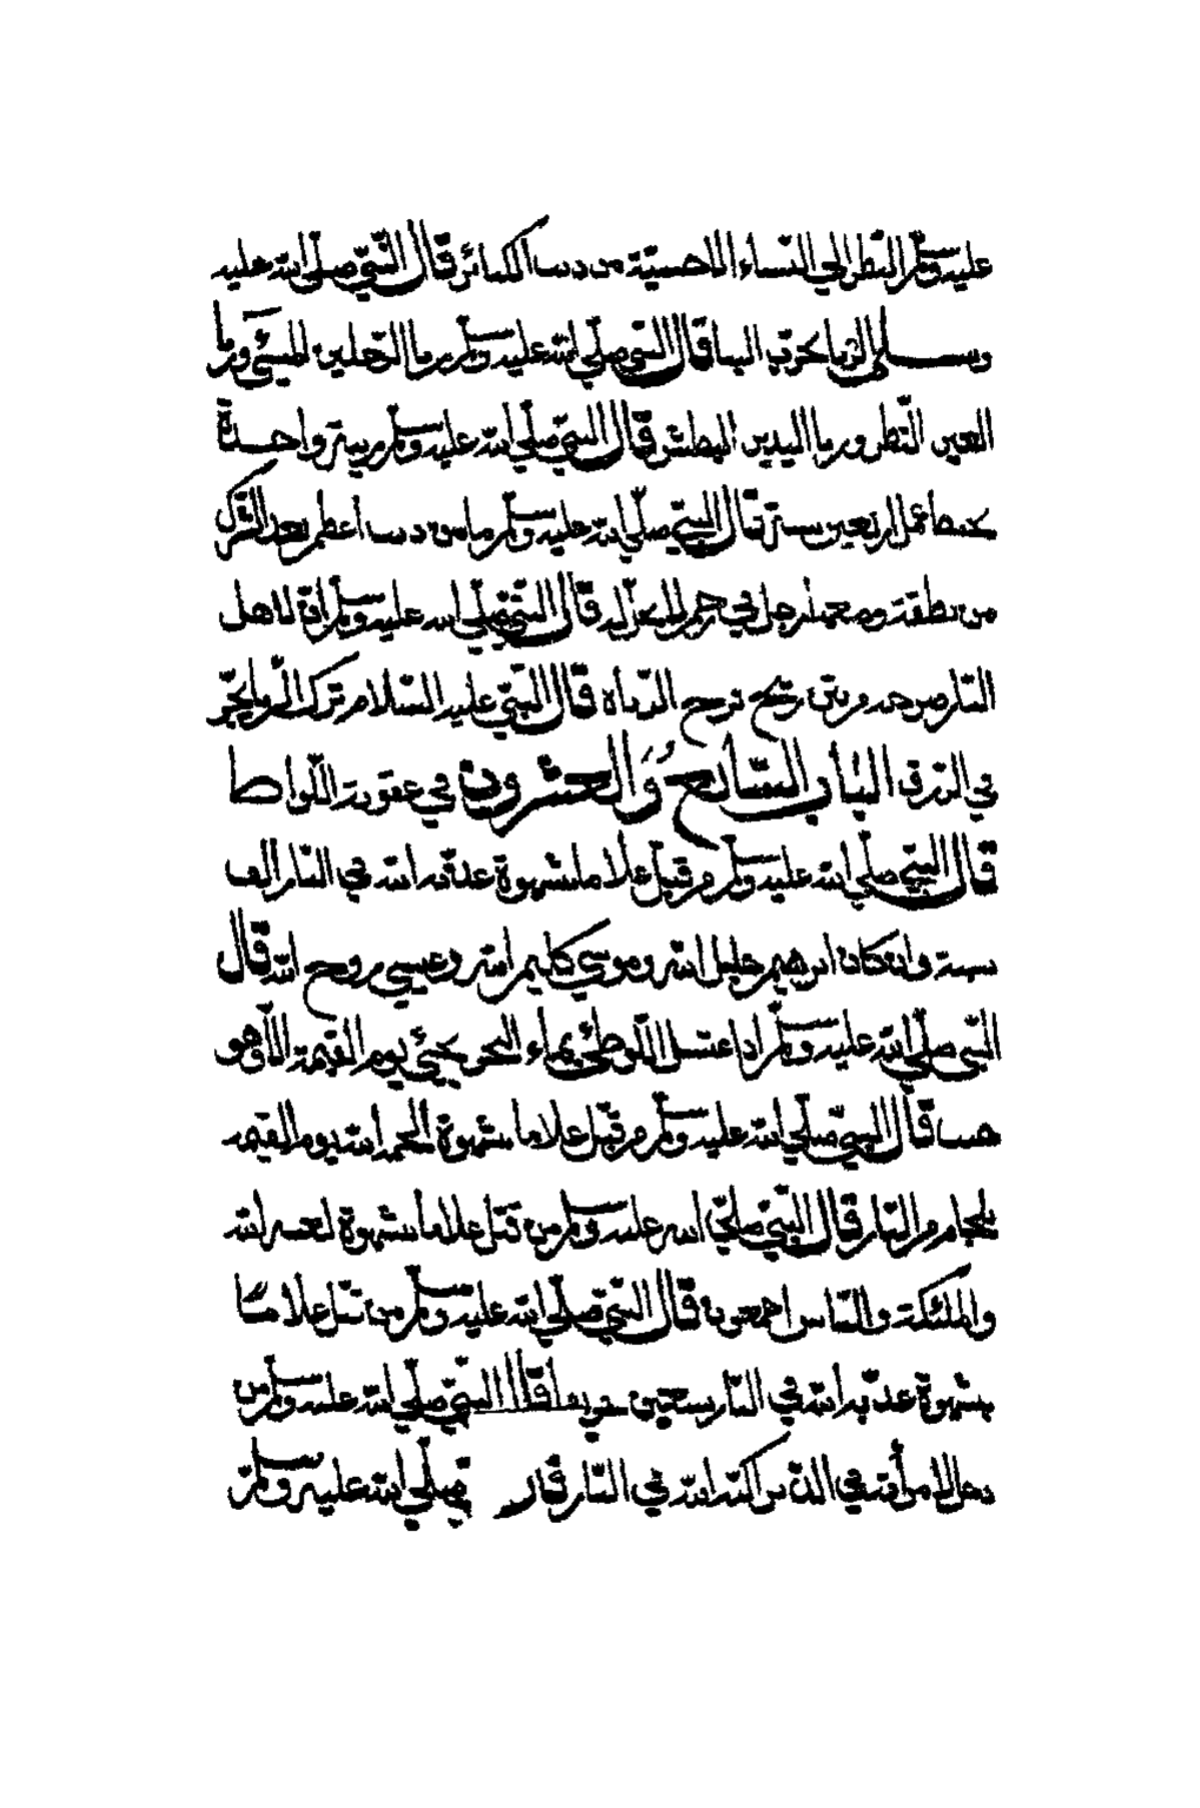 عليه وسلّم النّظر الي النّساء الاجنبيّة من الكبائر قال النّبيّ صلّي الله عليه
وسلم الزنا يخرّب البنا قال النّبيّ صلّي الله عليه وسلّم زنا الرّجلين المشي وزنا
العين النّظر وزنا اليدين البطش قال النّبيّ صلّي الله عليه وسلّم زنية واحدة
يحبط عمل اربعين سنة قال النّبيّ صلّي الله عليه وسلّم ما من ذنب أعظم بعد الشرك
من نطفة وضعها رجل في رحم لا يحلّ له قال النّبيّ صلّي الله عليه وسلّم إنّ لاهل
النّار من ريح الزّناة قال النّبيّ عليه السّلام ترك الزّنا يجرّ
في الرّزق الباب السّابع والعشرون في عقوبة اللّواط
قال النّبيّ صلّي الله عليه وسلّم من قبّل غلاما بشهوة عذّبه الله في النّار الف
سنة وان كان ابرهيم خليل الله وموسي كليم الله وعيسي روح الله قال
النّبي صلّي الله عليه وسلّم اذا اغتسل اللّوطيّ بماء البحر يجيئ يوم القيمة الّا وهو
جنب قال النّبيّ صلّي الله عليه وسلّم من قبّل غلاما بشهوة ألجمه الله يوم القيمة
بلجام من النّار قال النّبيّ صلّي الله عليه وسلّم من قبّل غلاما بشهوة لعنه الله
والملئكة والنّاس اجمعون قال النّبيّ صلّي الله عليه وسلّم من قبّل غلاما
بشهوة عذّبه الله في النّار سبعين خريفا قال النّبيّ صلّي الله عليه وسلّم من
دخل الي امرأته في الدّبر اكبّه الله في النّار قال صلّي الله عليه وسلّم